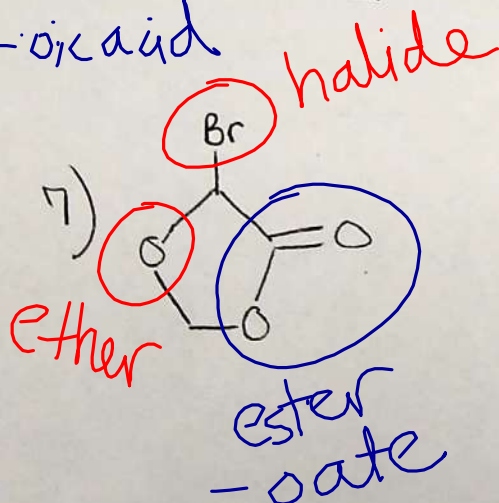 -oic acid
halide
Br
7)
O
O
O
ether
ester
-oate